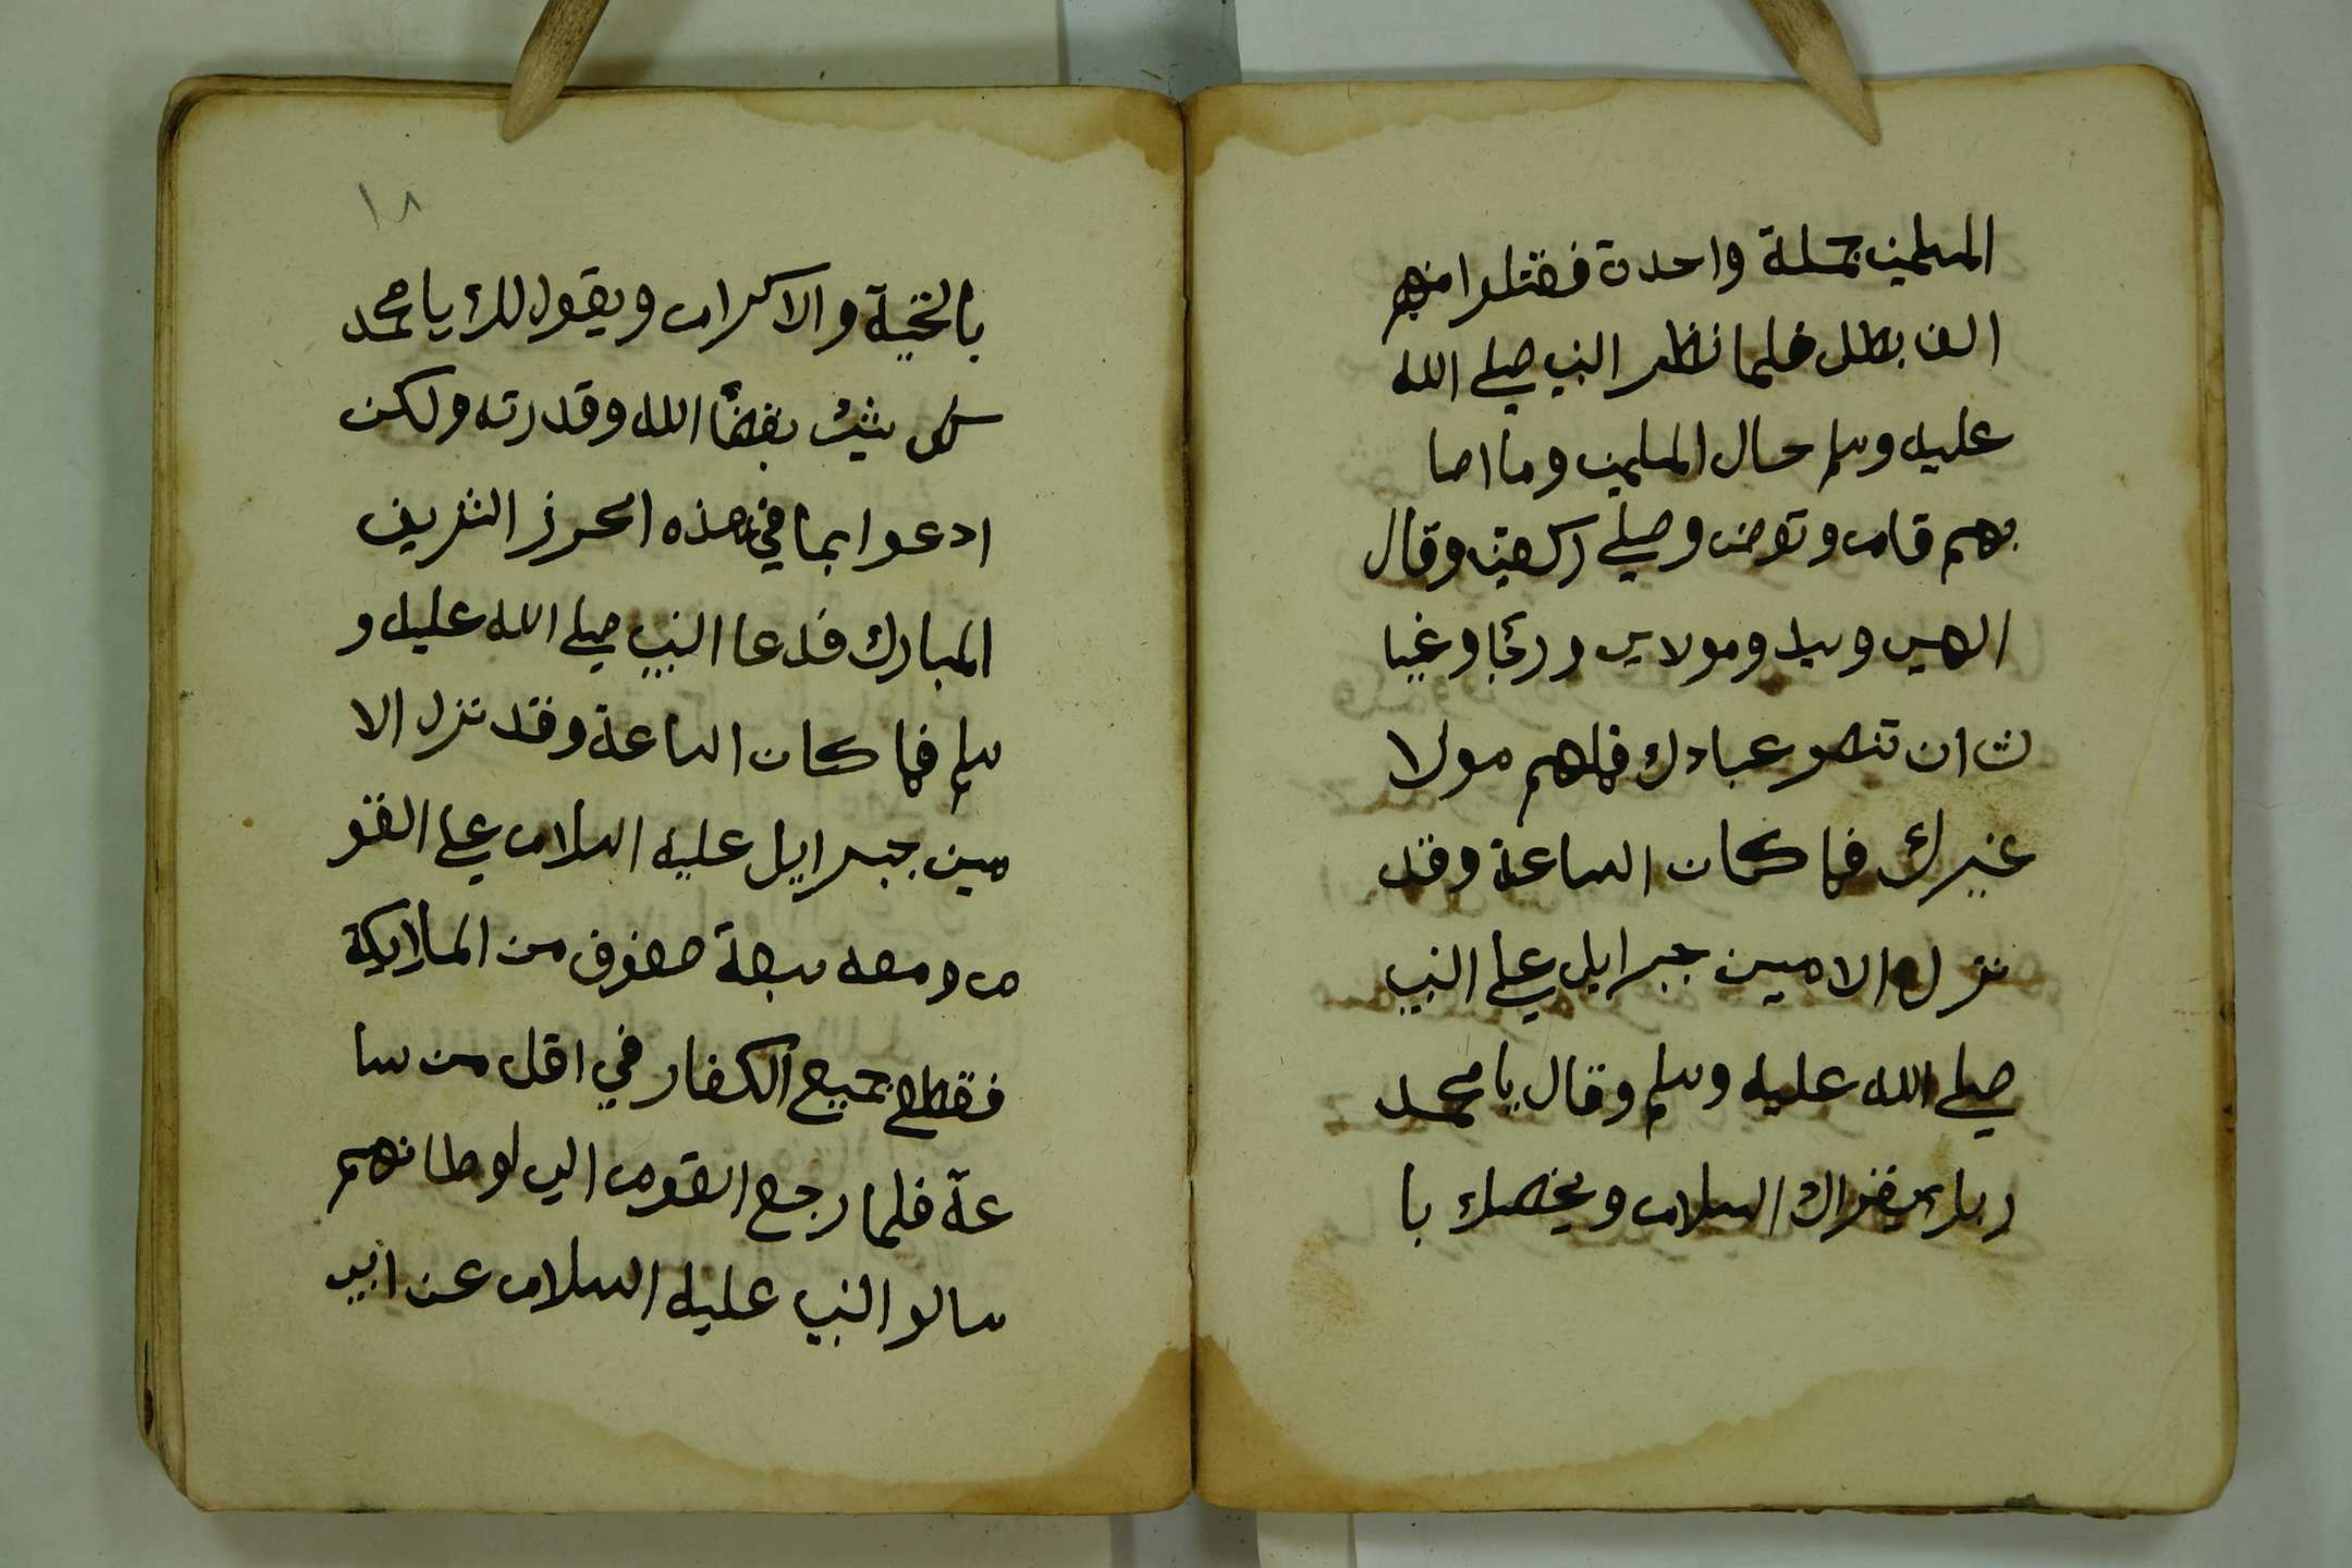 المسلمين جملة واحدة فقتلوا منهم
الف بطل فلما نظر النبي صلي الله
عليه وسلم حال المسلمين وما اصا
بهم قام وتوضى وصلي ركعتين وقال
الهي وسيدي ومولاي ورجايا وغيا
ث ان تنصر عبادك فما لهم مولا
غيرك فما كان الساعة وقد
نزل الامين جبرايل علي النبي
صلي الله عليه وسلم وقال يا محمد
ربك يقراك السلام ويخصك با
١٨
بالتحية والاكرام ويقول لك يا محمد
كل شئ بقضآ الله وقدرته ولكن
ادعوا بما في هذه الحرز الشريف
المبارك فدعا النبي صلي الله عليه و
سلم فما كان الساعة وقد نزل الا
مين جبرايل عليه السلام علي القو
م ومعه سبعة صفوف من الملايكة
فقطع جميع الكفار في اقل من سا
عة فلما رجع القوم الي اوطانهم
سالو النبي عليه السلام عن